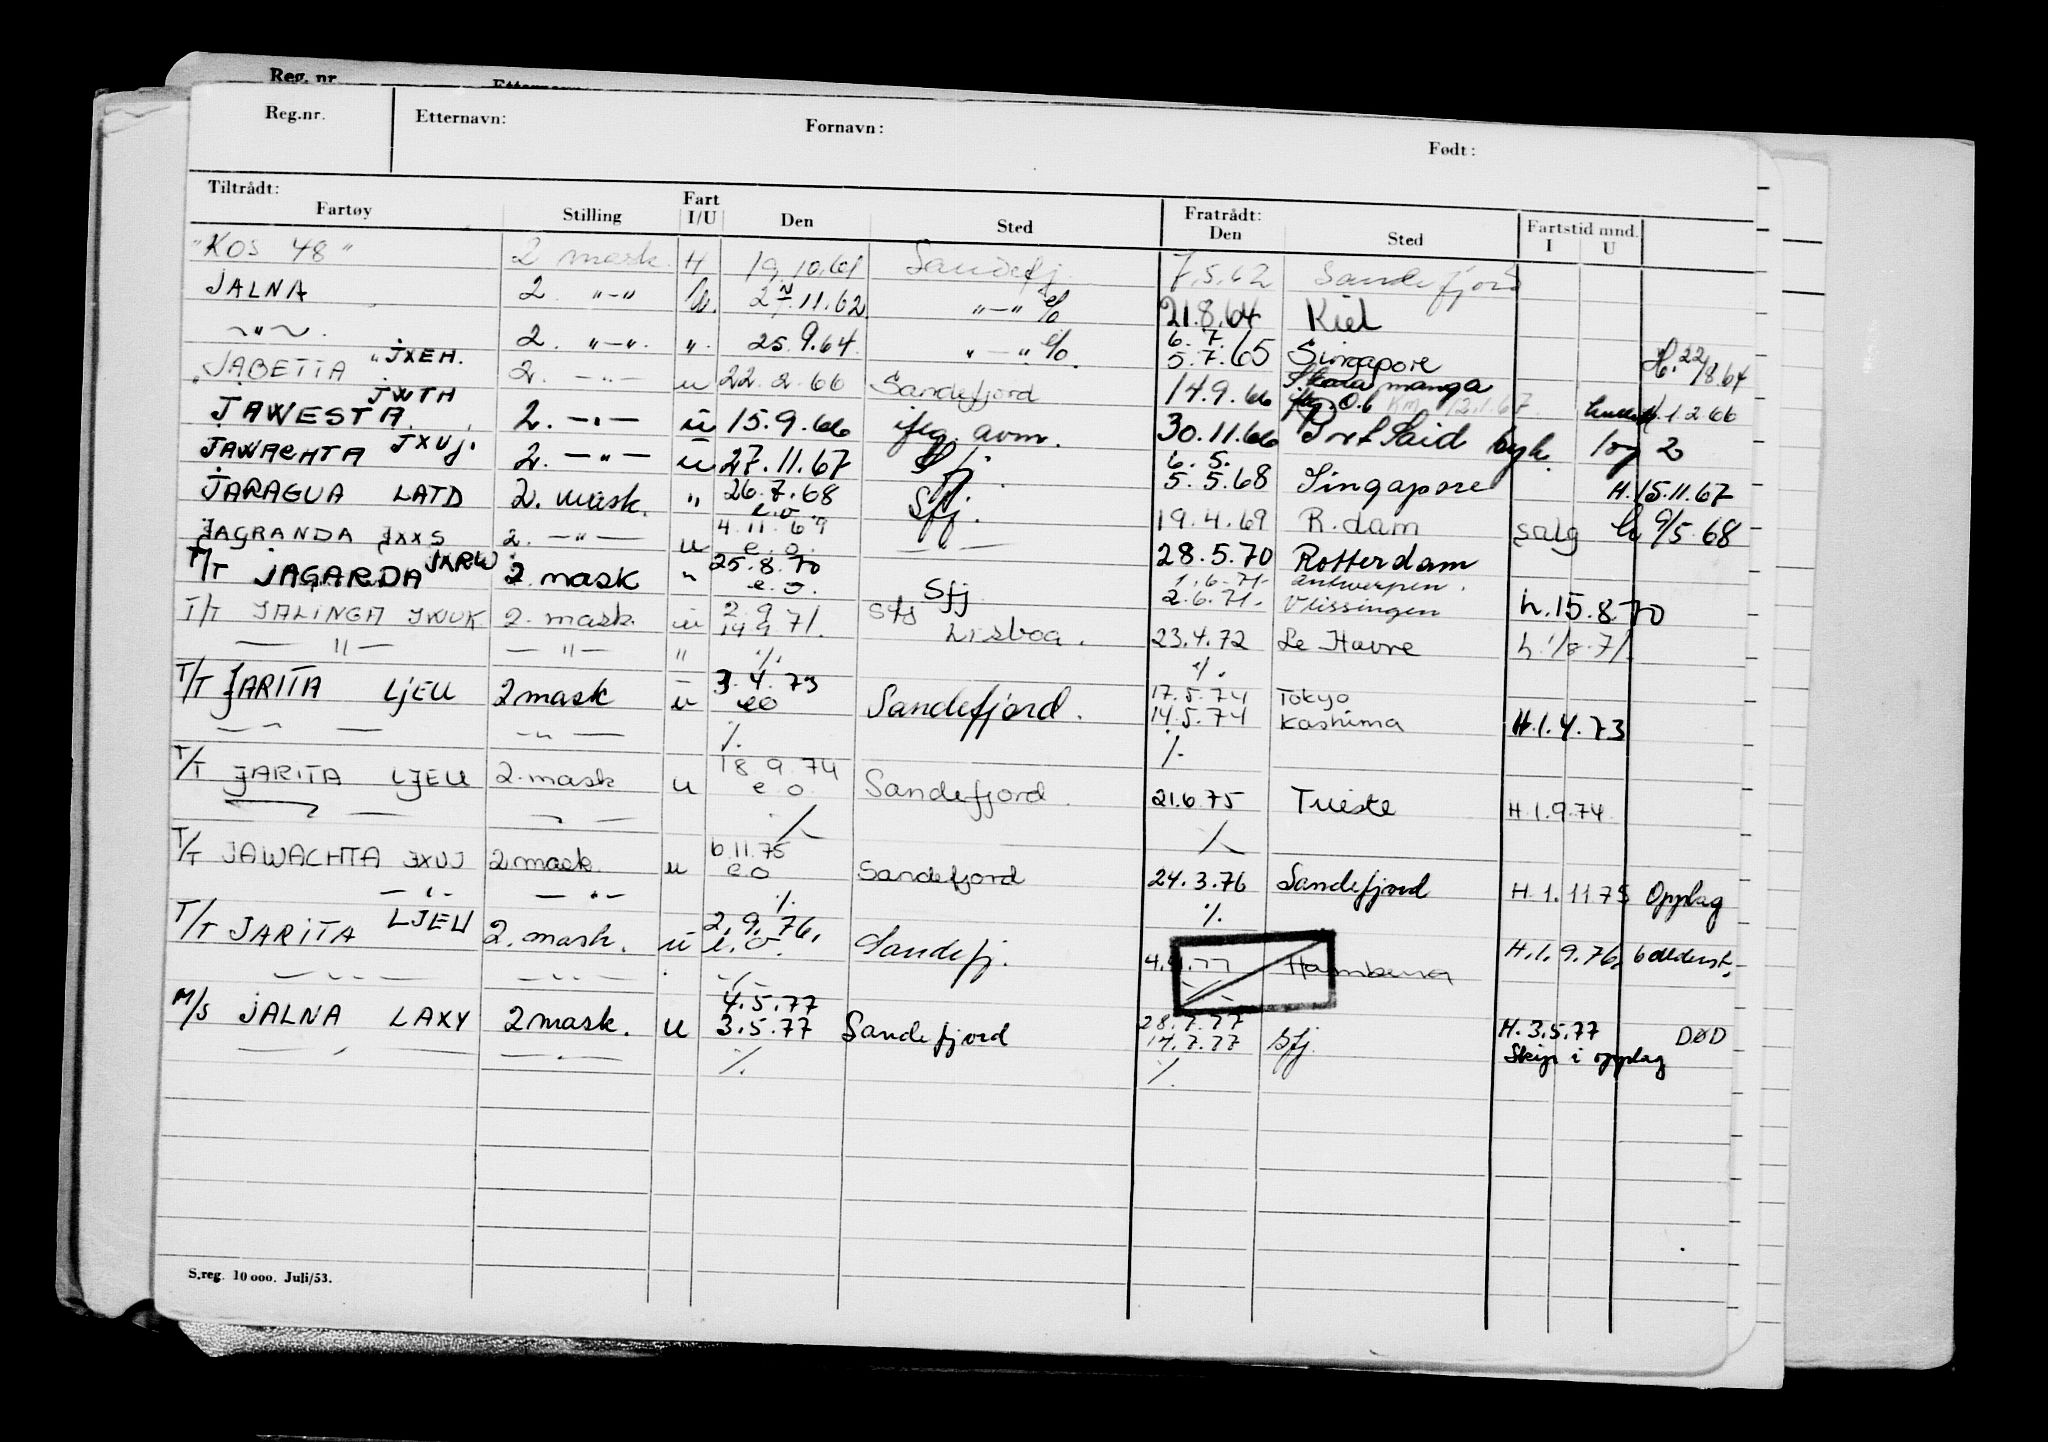 Reg. nr
Reg.nr. Etternavn: Fornavn: Født:
Tiltrådt: Fratrådt:
Fartøy Stilling Fart I/U Den Sted Den Sted Fartstid mnd. I U
"KOS 48" 2 mask. H 19.10.61 Sandefj. 7.5.62 Sandefjord
JALNA 2. "-" u. 2.11.62 "-" 21.8.64 Kiel
"- 2. "-". ". 25.9.64. "-" 6.7. 5.7.65 Singapore H. 22/8.64
"JABETTA" JXEH. 2. -"- u 22.2.66 Sandefjord 14.9.66 manga H.1.2.66
JAWESTA. JWTH 2. -"- u 15.9.66 iflg. avm. 30.11.66 Port Said syk. log 2
JAWACHTA JXUJ. 2. -"- u 27.11.67 Sfj. 6.5. 5.5.68 Singapore H.15.11.67
JARAGUA LATD 2. mask. " 26.7.68 e.o. Sfj. 19.4.69 R.dam salg h 9/5.68
JAGRANDA JXXS 2. -"- u 4.11.69 e.o. -"- 28.5.70 Rotterdam
T/T JAGARDA JXRW 2. mask " 25.8.70 e.o. Sfj 1.6.71. Antwerpen. 2.6.71. Vlissingen h.15.8.70
T/T JALINGA JWUK 2. mask u 2.9 14.9 71. Sfj Lisboa. 23.4.72 Le Havre h.1/8.71.
-"- -"- " ./. ./.
T/T JARITA LJEU 2 mask u 3.4.73 eo Sandefjord. 17.5.74 Tokyo 14.5.74 Kashima H.1.4.73
-"- -"- ./. ./.
T/T JARITA LJEU 2. mask u 18.9.74 e.o. Sandefjord. 21.6.75 Trieste H.1.9.74
-"- -"- ./. ./.
T/T JAWACHTA JXUJ 2 mask u 6.11.75 eo Sandefjord 24.3.76 Sandefjord H.1.11.75 Opplag
-"- -"- ./. ./.
T/T JARITA LJEU 2. mask. u 2.9.76. e.o. Sandefj. 77 Hamburg H.1.9.76
-"- -"- ./.
M/S JALNA LAXY 2 mask. u 4.5.77 3.5.77 Sandefjord 28.7.77 14.7.77 Sfj. H.3.5.77 Skip i opplag DØD
-"- -"- ./. ./.
S.reg. 10 000. Juli/53.